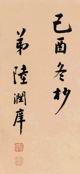 己酉冬杪
弟陸潤庠